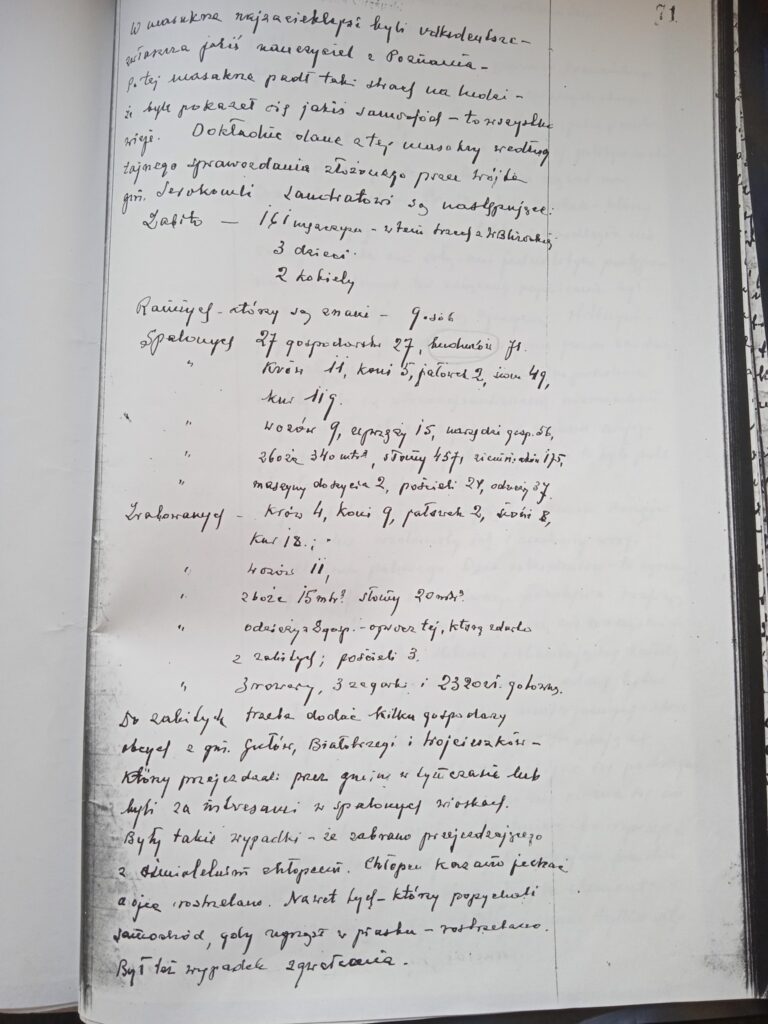 71
W masakrze najzacieklejsi byli volksdeutsze –
zwłaszcza jakiś nauczyciel z Poznania –
Po tej masakrze padł taki strach na ludzi –
że byle pokazał się jakiś samochód – to wszystko
wieje. Dokładne dane z tej masakry według
tajnego sprawozdania złożonego przez wójta
gm. Serokomli Landratowi są następujące:
Zabito — 161 mężczyzn – w tem trzech z W.
3 dzieci.
2 kobiety
Rannych – którzy są znani – 9 osób
Spalonych 27 gospodarstw 27, budynków 71.
" Krów 11, koni 5, jałówek 2, świn 49,
kur 119.
" wozów 9, uprzęży 15, narzędzi gosp. 56,
" zboża 340 mtr, słomy 457, ziemniaków 175,
" maszyny do szycia 2, pościeli 24, odzieży 37.
Zrabowanych – Krów 4, koni 9, jałówek 2, świń 8,
kur 18.;
" wozów 11,
" zboże 15 mtr. słomy 20 mtr.
" odzieży z 8 gosp. – oprócz tej, którą zdarto
z zabitych; pościeli 3.
" 3 rowery, 3 zegarki i 2320 zł. gotówką.
Do zabitych trzeba dodać kilku gospodarzy
obcych z gm. Gułów, Białobrzegi i Wojcieszków –
którzy przejeżdżali przez gminę w tym czasie lub
byli za interesami w spalonych wioskach.
Były takie wypadki – że zabrano przejeżdzającego
z ośmioletnim chłopcem. Chłopcu kazano jechać
a ojca rozstrzelano. Nawet tych – którzy popychali
samochód, gdy ugrzązł w piasku – rozstrzelano.
Był też wypadek zgwałcenia.